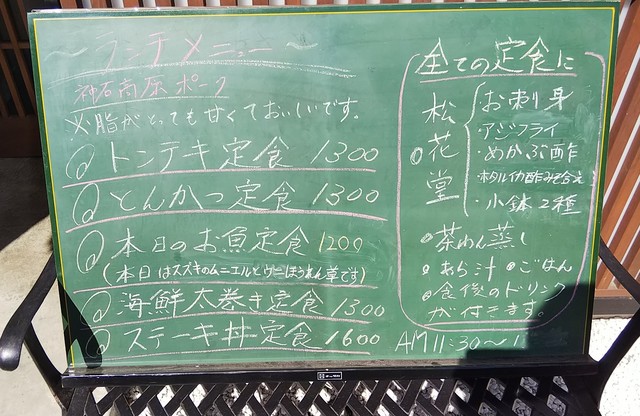 〜ランチメニュー〜
神石高原ポーク
※脂がとっても甘くておいしいです。
◎トンテキ定食 1300
◎とんかつ定食 1300
◎本日のお魚定食 1200
(本日はスズキのムニエルとウニほうれん草です)
◎海鮮太巻き定食 1300
◎ステーキ丼定食 1600
全ての定食に
松花堂
・お刺し身
・アジフライ
・めかぶ酢
・ホタルイカ酢みそ合え
・小鉢2種
◎茶わん蒸し
◎あら汁 ◎ごはん
◎食後のドリンク
が付きます。
AM 11:30〜1